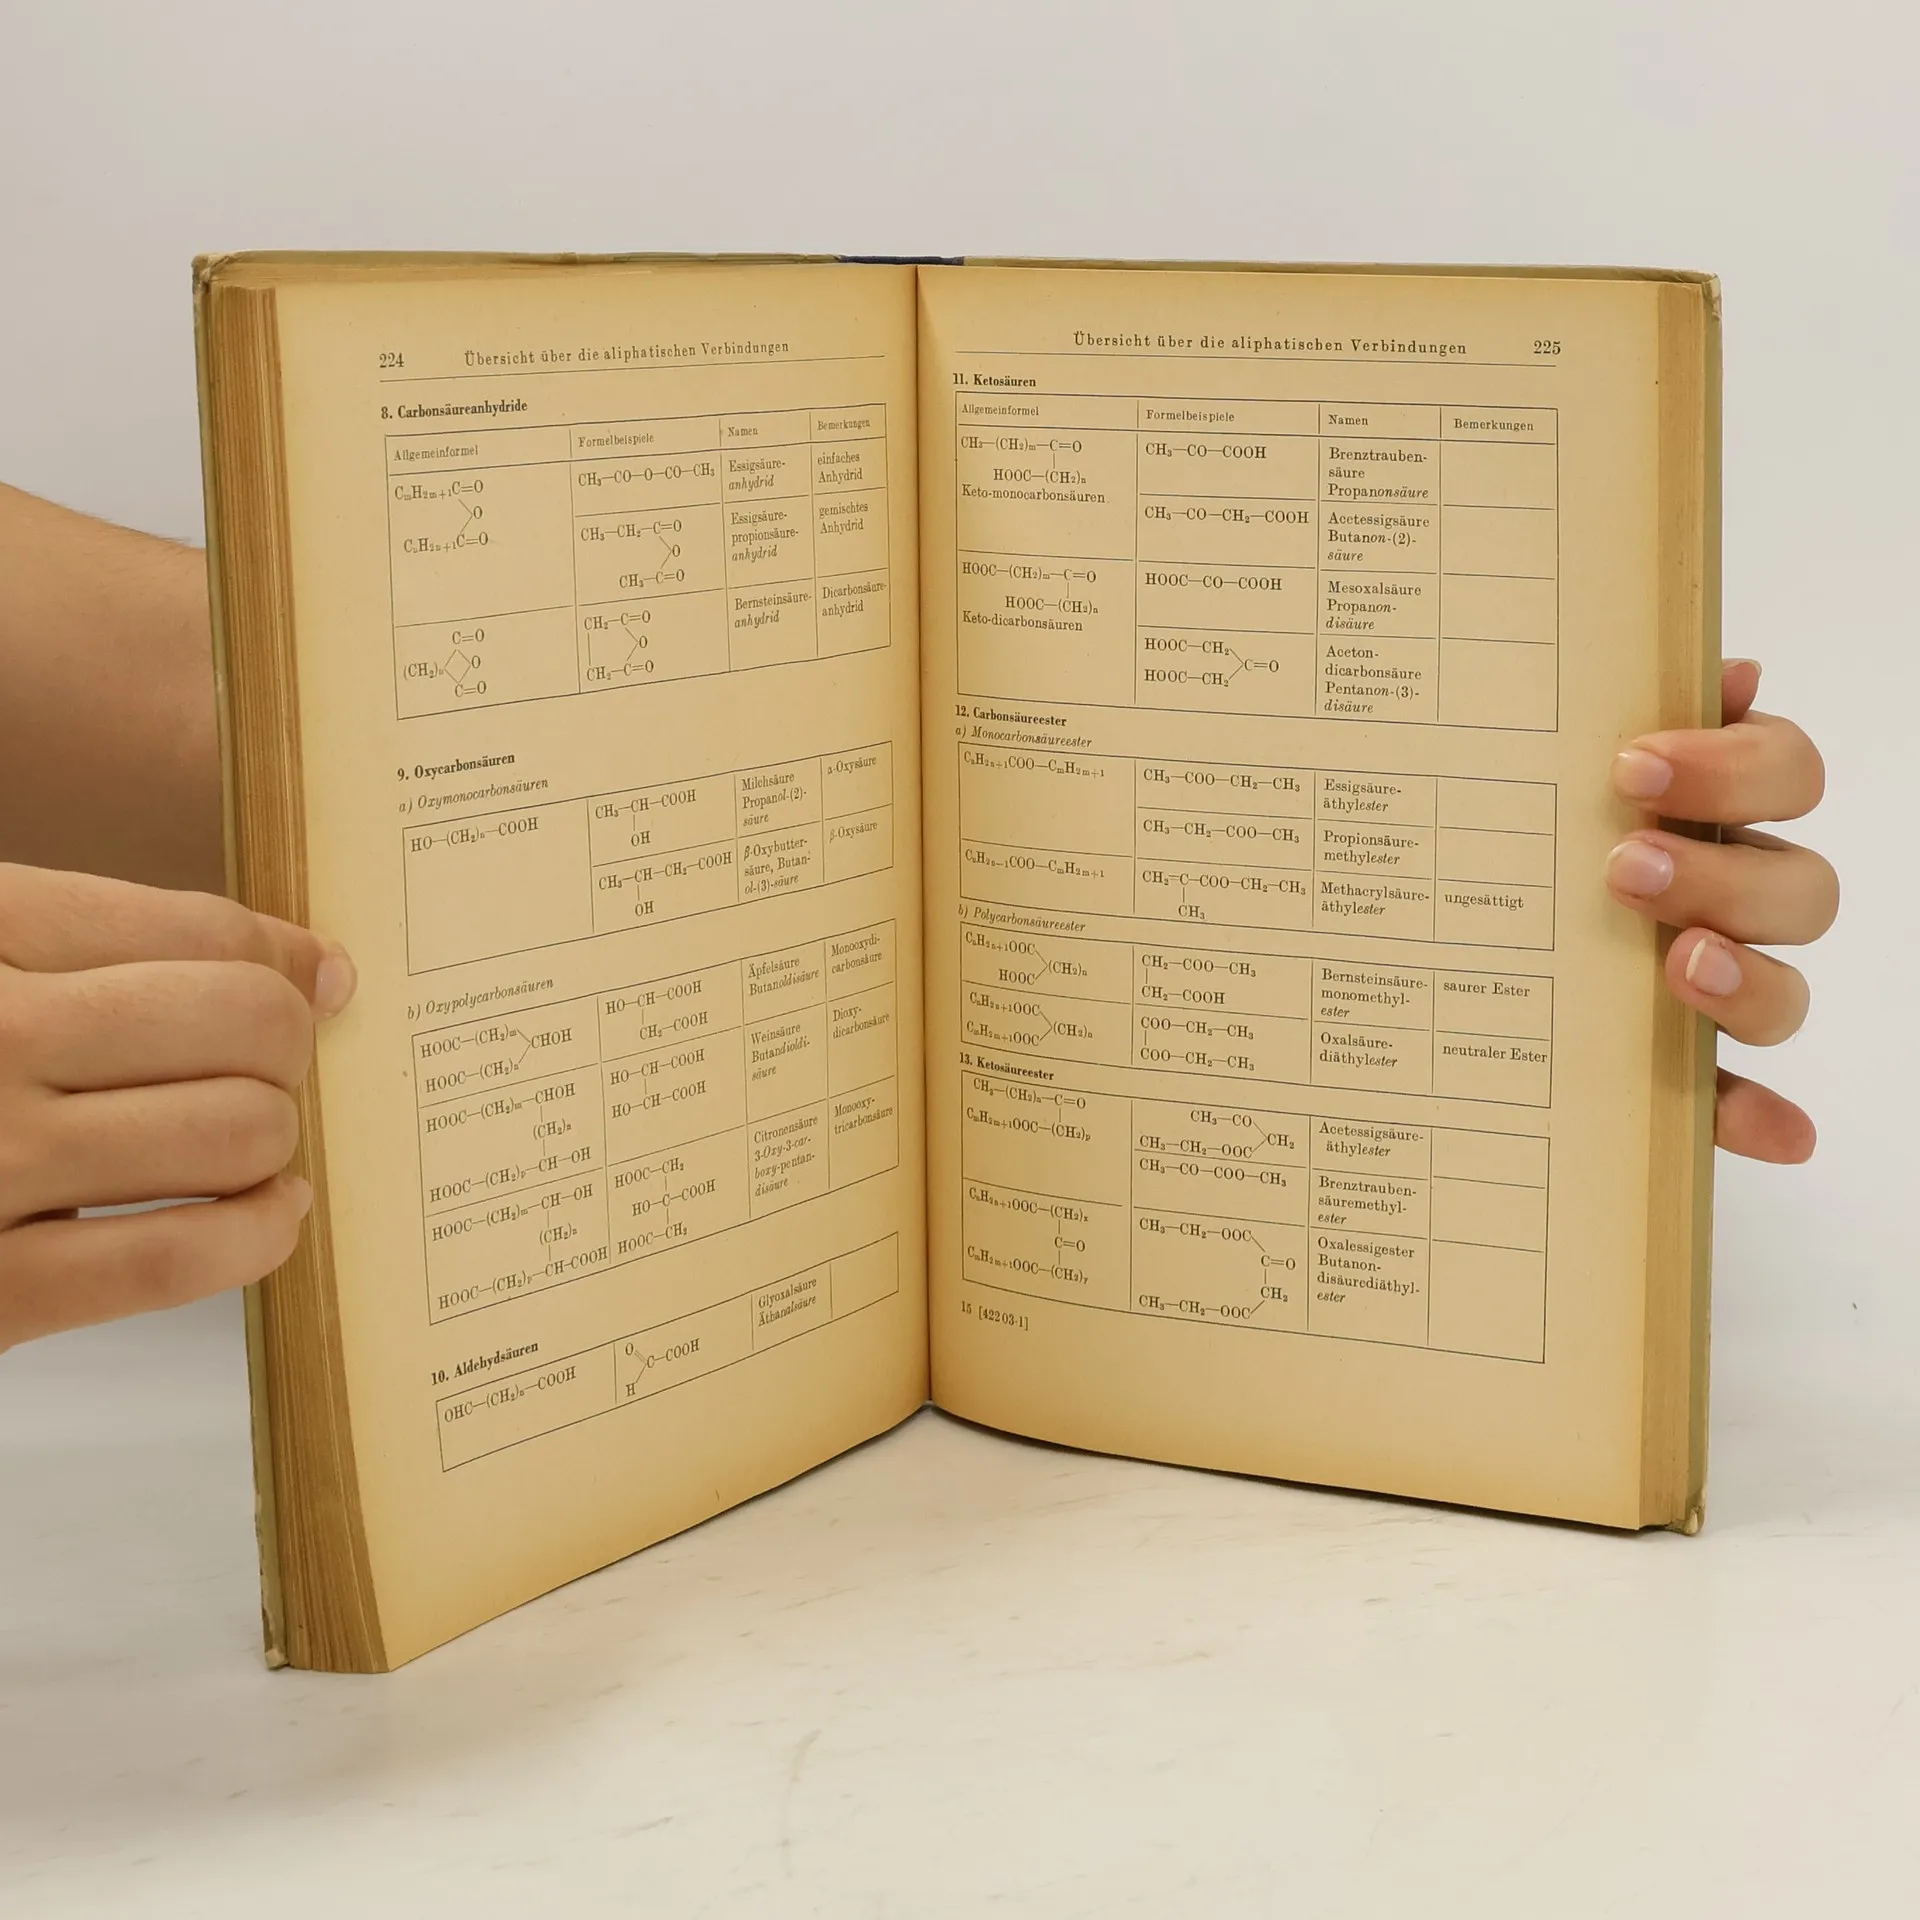 224 Übersicht über die aliphatischen Verbindungen
8. Carbonsäureanhydride
Allgemeinformel Formelbeispiele Namen Bemerkungen
CₘH₂ₘ₊₁C=O
O
CₙH₂ₙ₊₁C=O
CH₃—CO—O—CO—CH₃
Essigsäure-
anhydrid
einfaches
Anhydrid
CH₃—CH₂—C=O
O
CH₃—C=O
Essigsäure-
propionsäure-
anhydrid
gemischtes
Anhydrid
C=O
(CH₂)ₙ O
C=O
CH₂—C=O
O
CH₂—C=O
Bernsteinsäure-
anhydrid
Dicarbonsäure-
anhydrid
9. Oxycarbonsäuren
a) Oxymonocarbonsäuren
HO—(CH₂)ₙ—COOH
CH₃—CH—COOH
OH
Milchsäure
Propanol-(2)-
säure
α-Oxysäure
CH₃—CH—CH₂—COOH
OH
β-Oxybutter-
säure, Butan-
ol-(3)-säure
β-Oxysäure
b) Oxypolycarbonsäuren
HOOC—(CH₂)ₘ
CHOH
HOOC—(CH₂)ₙ
HO—CH—COOH
CH₂—COOH
Äpfelsäure
Butanoldisäure
Monooxydi-
carbonsäure
HOOC—(CH₂)ₘ—CHOH
(CH₂)ₙ
HOOC—(CH₂)ₚ—CH—OH
HO—CH—COOH
HO—CH—COOH
Weinsäure
Butandioldi-
säure
Dioxy-
dicarbonsäure
HOOC—(CH₂)ₘ—CH—OH
(CH₂)ₙ
HOOC—(CH₂)ₚ—CH—COOH
HOOC—CH₂
HO—C—COOH
HOOC—CH₂
Citronensäure
3-Oxy-3-car-
boxy-pentan-
disäure
Monooxy-
tricarbonsäure
10. Aldehydsäuren
OHC—(CH₂)ₙ—COOH
O
C—COOH
H
Glyoxalsäure
Äthanalsäure
Übersicht über die aliphatischen Verbindungen 225
11. Ketosäuren
Allgemeinformel Formelbeispiele Namen Bemerkungen
CH₃—(CH₂)ₘ—C=O
HOOC—(CH₂)ₙ
Keto-monocarbonsäuren
CH₃—CO—COOH
Brenztrauben-
säure
Propanonsäure
CH₃—CO—CH₂—COOH
Acetessigsäure
Butanon-(2)-
säure
HOOC—(CH₂)ₘ—C=O
HOOC—(CH₂)ₙ
Keto-dicarbonsäuren
HOOC—CO—COOH
Mesoxalsäure
Propanon-
disäure
HOOC—CH₂
C=O
HOOC—CH₂
Aceton-
dicarbonsäure
Pentanon-(3)-
disäure
12. Carbonsäureester
a) Monocarbonsäureester
CₙH₂ₙ₊₁COO—CₘH₂ₘ₊₁
CH₃—COO—CH₂—CH₃
Essigsäure-
äthylester
CH₃—CH₂—COO—CH₃
Propionsäure-
methylester
CₙH₂ₙ₋₁COO—CₘH₂ₘ₊₁
CH₂=C—COO—CH₂—CH₃
CH₃
Methacrylsäure-
äthylester
ungesättigt
b) Polycarbonsäureester
CₙH₂ₙ₊₁OOC
(CH₂)ₙ
HOOC
CH₂—COO—CH₃
CH₂—COOH
Bernsteinsäure-
monomethyl-
ester
saurer Ester
CₙH₂ₙ₊₁OOC
(CH₂)ₙ
CₘH₂ₘ₊₁OOC
COO—CH₂—CH₃
COO—CH₂—CH₃
Oxalsäure-
diäthylester
neutraler Ester
13. Ketosäureester
CH₃—(CH₂)ₙ—C=O
CₘH₂ₘ₊₁OOC—(CH₂)ₚ
CH₃—CO
CH₂
CH₃—CH₂—OOC
Acetessigsäure-
äthylester
CH₃—CO—COO—CH₃
Brenztrauben-
säuremethyl-
ester
CₙH₂ₙ₊₁OOC—(CH₂)ₓ
C=O
CₘH₂ₘ₊₁OOC—(CH₂)ᵧ
CH₃—CH₂—OOC
C=O
CH₂
CH₃—CH₂—OOC
Oxalessigester
Butanon-
disäurediäthyl-
ester
15 [42203-1]